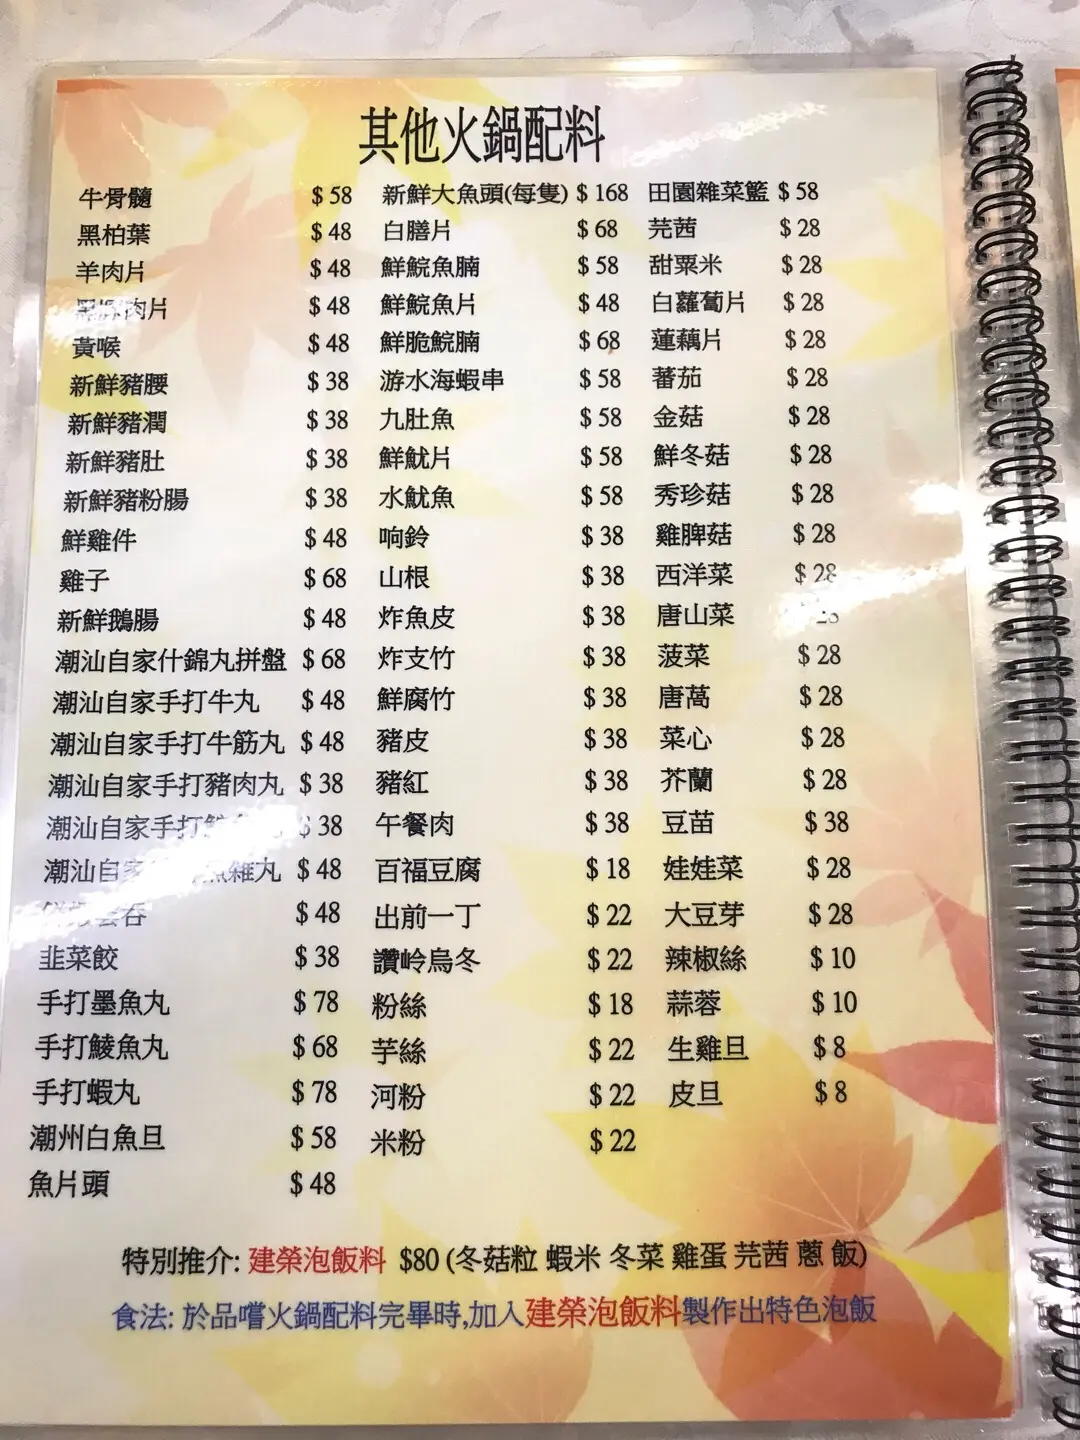 其他火鍋配料
牛骨髓 $ 58
黑柏葉 $ 48
羊肉片 $ 48
肉片 $ 48
黃喉 $ 48
新鮮豬腰 $ 38
新鮮豬潤 $ 38
新鮮豬肚 $ 38
新鮮豬粉腸 $ 38
鮮雞件 $ 48
雞子 $ 68
新鮮鵝腸 $ 48
潮汕自家什錦丸拼盤 $ 68
潮汕自家手打牛丸 $ 48
潮汕自家手打牛筋丸 $ 48
潮汕自家手打豬肉丸 $ 38
潮汕自家手打 $ 38
潮汕自家 雜丸 $ 48
雲吞 $ 48
韭菜餃 $ 38
手打墨魚丸 $ 78
手打鯪魚丸 $ 68
手打蝦丸 $ 78
潮州白魚旦 $ 58
魚片頭 $ 48
新鮮大魚頭(每隻) $ 168
白膳片 $ 68
鮮鯇魚腩 $ 58
鮮鯇魚片 $ 48
鮮脆鯇腩 $ 68
游水海蝦串 $ 58
九肚魚 $ 58
鮮魷片 $ 58
水魷魚 $ 58
响鈴 $ 38
山根 $ 38
炸魚皮 $ 38
炸支竹 $ 38
鮮腐竹 $ 38
豬皮 $ 38
豬紅 $ 38
午餐肉 $ 38
百福豆腐 $ 18
出前一丁 $ 22
讚岭烏冬 $ 22
粉絲 $ 18
芋絲 $ 22
河粉 $ 22
米粉 $ 22
田園雜菜籃 $ 58
芫茜 $ 28
甜粟米 $ 28
白蘿蔔片 $ 28
蓮藕片 $ 28
蕃茄 $ 28
金菇 $ 28
鮮冬菇 $ 28
秀珍菇 $ 28
雞脾菇 $ 28
西洋菜 $ 28
唐山菜
菠菜 $ 28
唐萵 $ 28
菜心 $ 28
芥蘭 $ 28
豆苗 $ 38
娃娃菜 $ 28
大豆芽 $ 28
辣椒絲 $ 10
蒜蓉 $ 10
生雞旦 $ 8
皮旦 $ 8
特別推介: 建榮泡飯料 $80 (冬菇粒 蝦米 冬菜 雞蛋 芫茜 蔥 飯)
食法: 於品嚐火鍋配料完畢時,加入建榮泡飯料製作出特色泡飯